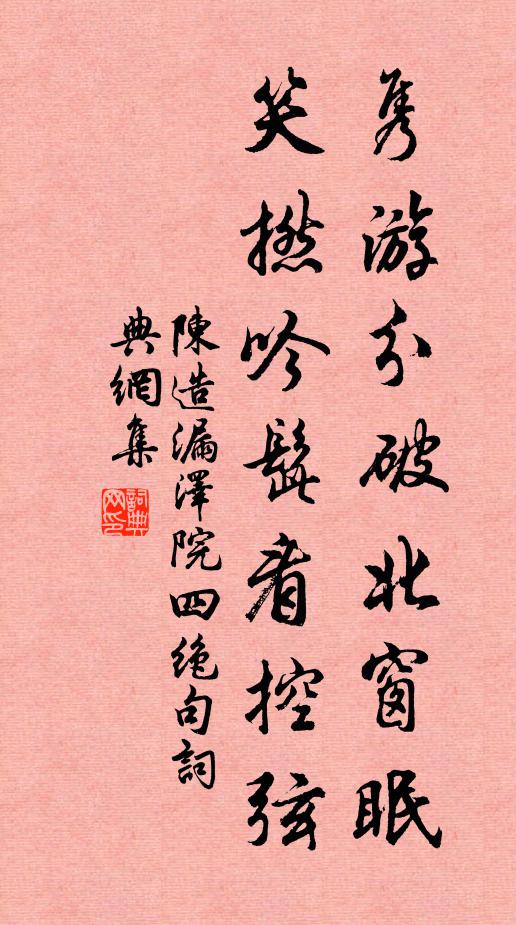 隽游分破北窗眠
笑撚吟髭看控弦
陳造漏澤院四绝句詞
典網集
詞典
网印